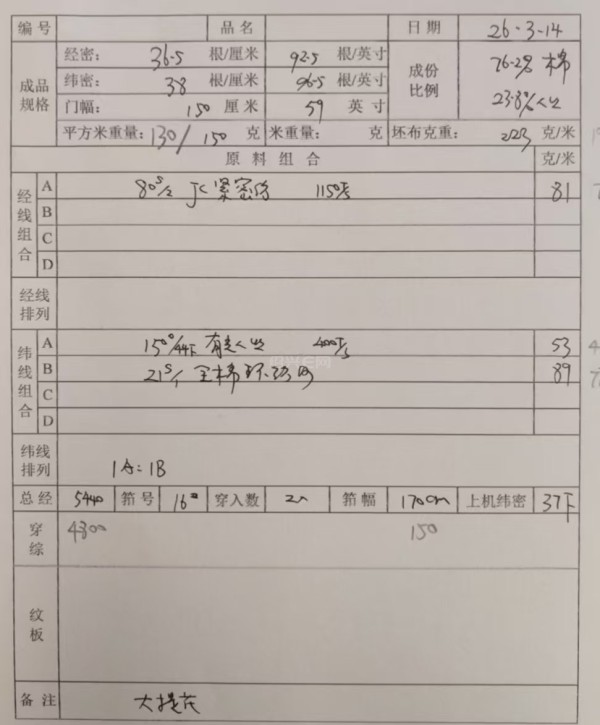 编号 品名 日期 26-3-14
成品规格 经密: 36.5 根/厘米 92.5 根/英寸 成份比例 76.2% 棉
纬密: 38 根/厘米 96.5 根/英寸 23.8%人丝
门幅: 150 厘米 59 英寸
平方米重量: 130/150 克 米重量: 克 坯布克重: 223 克/米
原料组合 克/米
经线组合 A 80S/2 JC紧密纺 81
B
C
D
经线排列
纬线组合 A 150D/44F 有光人丝 53
B 21S/1 全棉环纺 89
C
D
纬线排列 1A:1B
总经 5440 筘号 16 穿入数 2入 筘幅 170cm 上机纬密 37下
穿综 4800 150
纹板
备注 大提花